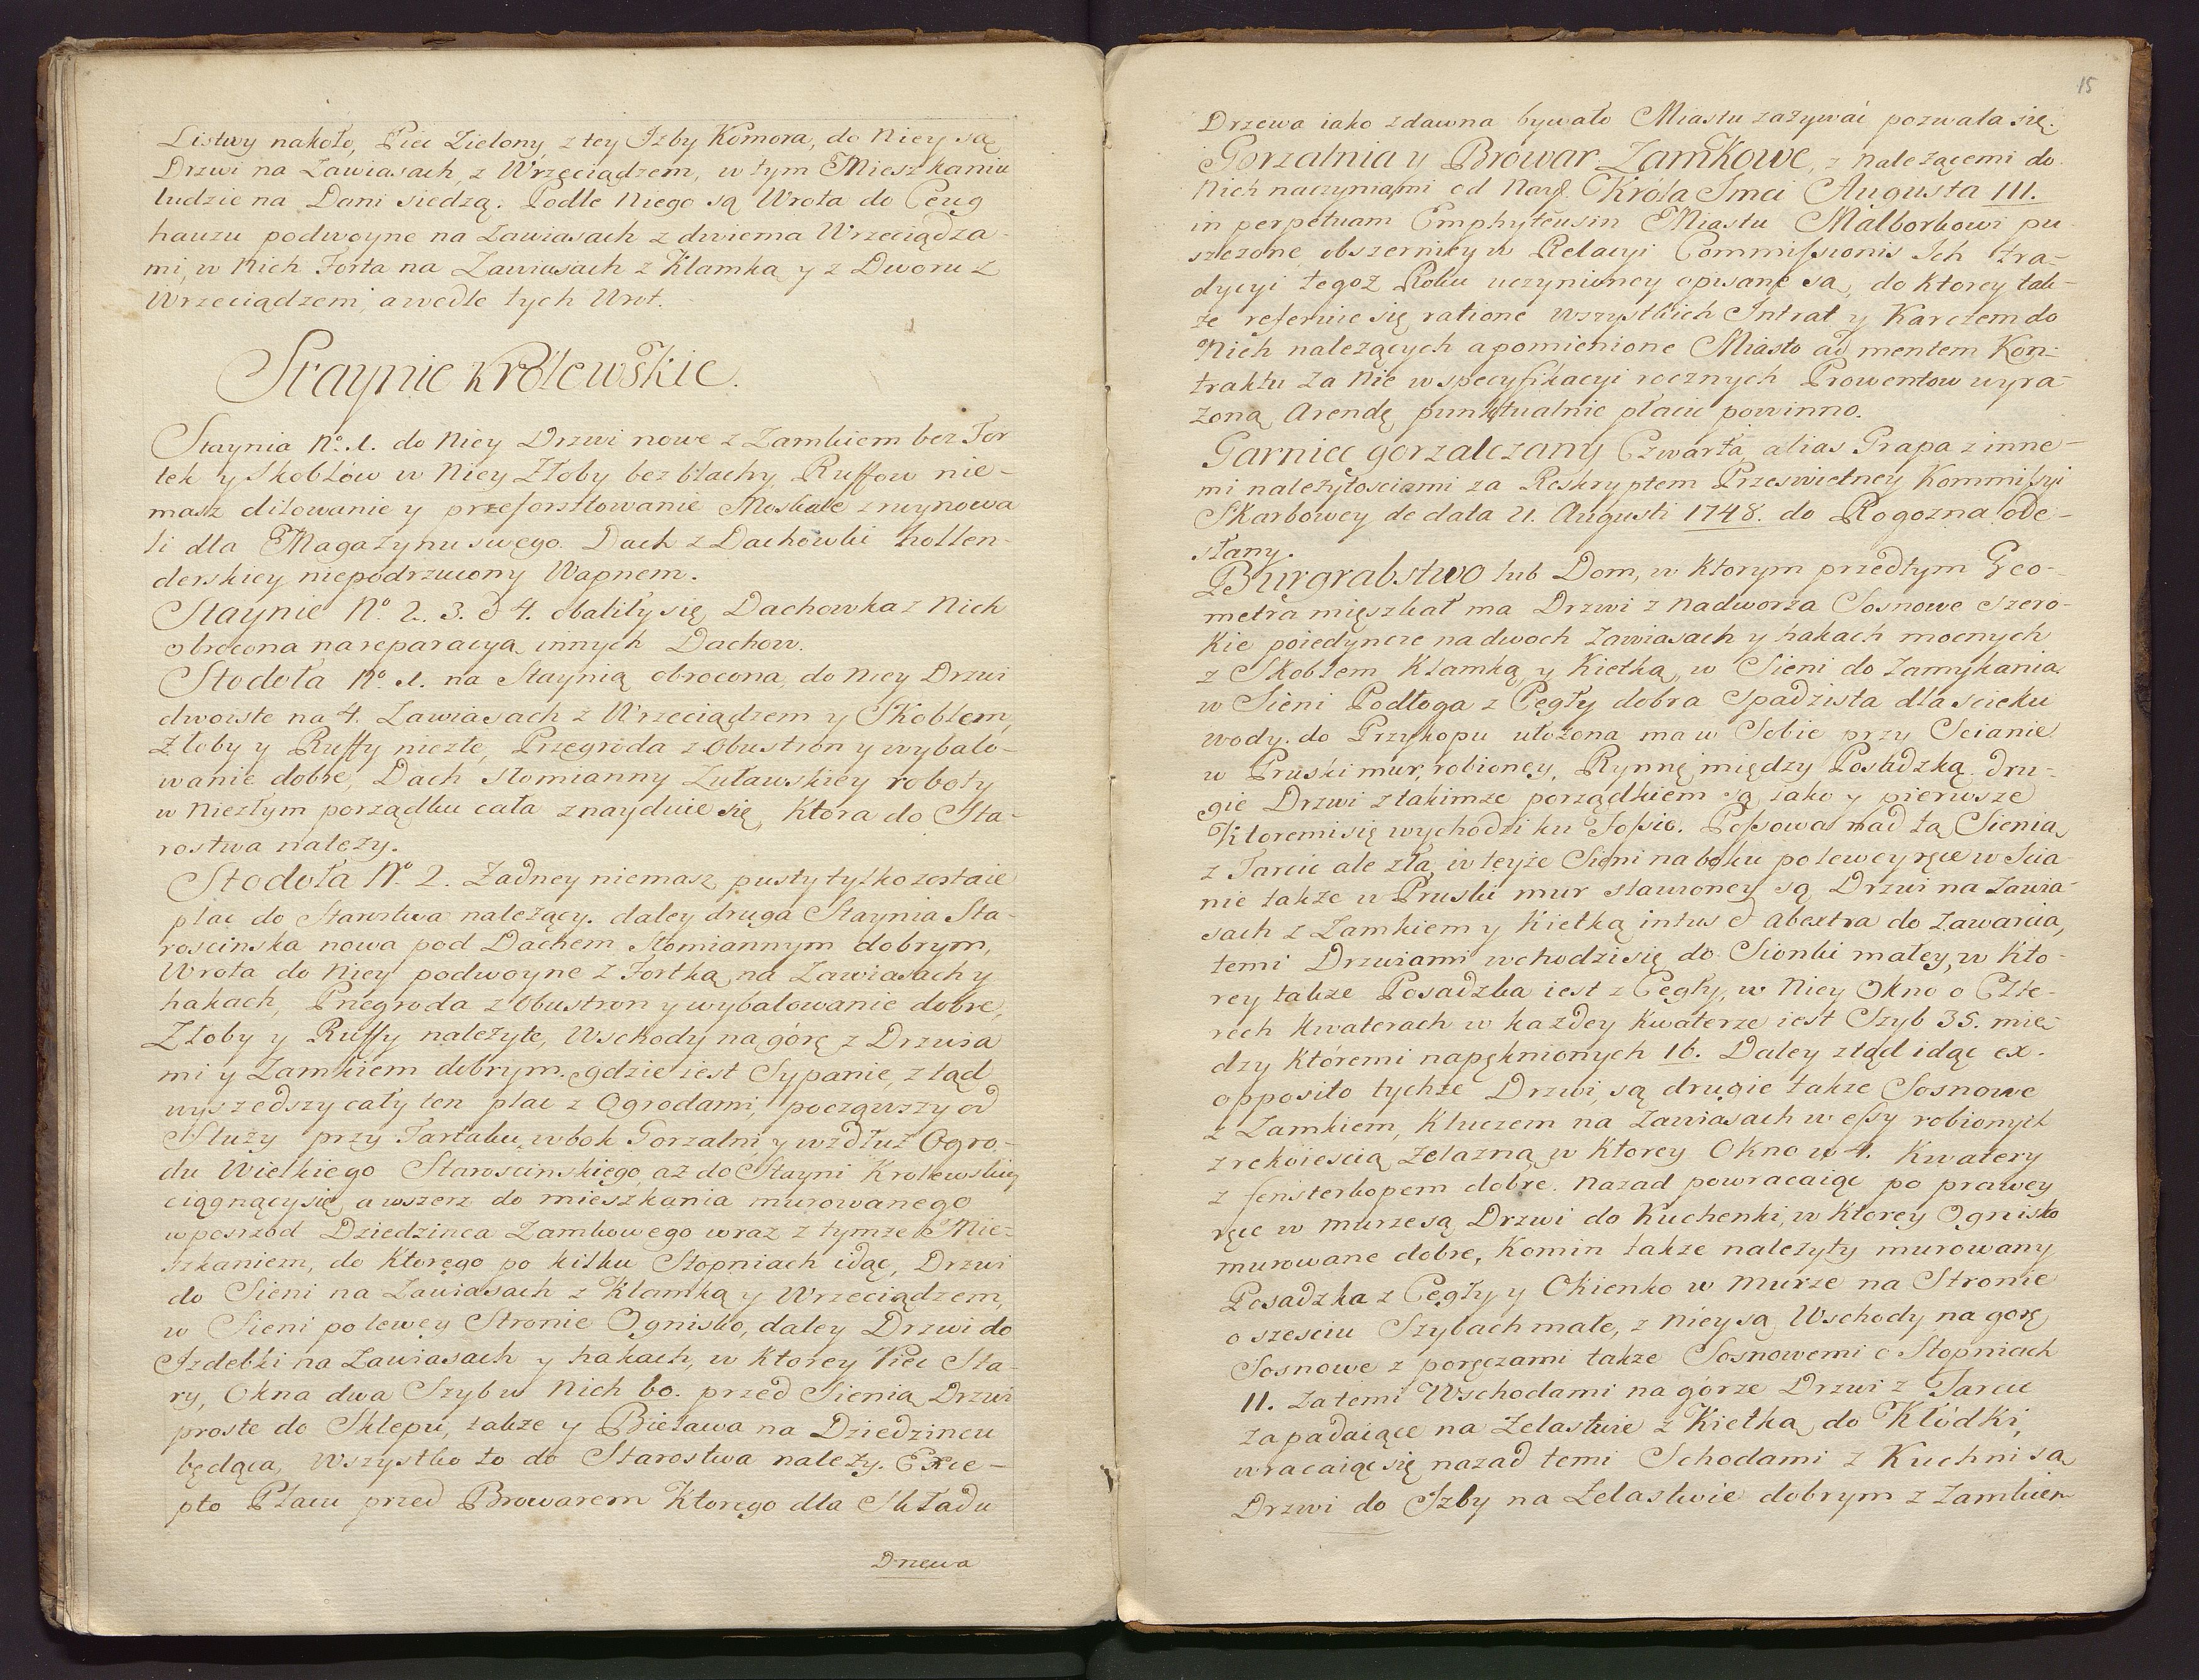 Listwy nakoło, Piec Zielony z tey Izby Komora, do Niey są
Drzwi na Zawiasach, z Wrzeciądzem, w tym Mieszkaniu
ludzie na Dani siedzą. Podle Niego są Wrota do Ceug
hauzu podwoyne na Zawiasach z dwiema Wrzeciądza-
mi, w Nich Forta na Zawiasach z Klamką y z Dworu z
Wrzeciądzem, a wedle tych Wrot.
Staynie Królewskie.
Staynia No. 1. do Niey Drzwi nowe z Zamkiem bez For
tek y Skoblów w Niey Złoby bez blachy Ruffow nie-
masz dilowanie y przeforsztowanie Moskale zruynowa
li dla Magazynu swego. Dach z Dachowki hollen-
derskiey niepodrzucony Wapnem.
Staynie No. 2. 3. & 4. obaliły się, Dachowka z Nich
obrocona na reparacyą innych Dachow.
Stodoła No. 1. na Staynią obrocona, do Niey Drzwi
dwoiste na 4. Zawiasach z Wrzeciądzem y Skoblem,
Złoby y Ruffy niezłe, Przegroda z obustron y wybalo-
wanie dobre, Dach słomianny Zuławskiey roboty
w Niezłym porządku cała znayduie się, Ktora do Sta-
rostwa nalezy.
Stodoła No. 2. Zadney niemasz pusty tylko zostaie
plac do Starostwa nalezący. daley druga Staynia Sta-
roscinska nowa pod Dachem Słomiannym dobrym,
Wrota do Niey podwoyne z Fortką na Zawiasach y
hakach, Przegroda z obustron y wybalowanie dobre,
Złoby y Ruffy nalezyte, Wschody na górę z Drzwia
mi y Zamkiem dobrym. gdzie iest Sypanie, z tąd
wyszedszy cały ten plac z Ogrodami, począwszy od
Sluzy przy Tartaku, w bok Gorzalni y wzdłuz Ogro-
du Wielkiego Staroscinskiego, az do Stayni Krolewskiey
ciągnący się a wszerz do mieszkania murowanego
w posrzod Dziedzinca Zamkowego wraz z tymze Mie-
szkaniem, do Ktorego po kilku Stopniach idąc, Drzwi
do Sieni na Zawiasach z Klamką y Wrzeciądzem,
w Sieni po lewey Stronie Ognisko, daley Drzwi do
Izdebki na Zawiasach y hakach, w Ktorey Piec Sta-
ry, Okna dwa Szyb w Nich 60. przed Sienią Drzwi
proste do Sklepu, takze y Bielawa na Dziedzincu
będąca, Wszystko to do Starostwa nalezy. Exce-
pto Placu przed Browarem Ktorego dla Składu
Drzewa
15
Drzewa iako zdawna bywało Miastu zazywać pozwala się.
Gorzalnia y Browar Zamkowe, z Nalezącemi do
Nich naczyniami od Nayj. Króla Jmci Augusta III.
in perpetuam Emphyteusin Miastu Malborkowi pu-
szczone obszerniey w Relacyi Commissionis Ich tra-
dycyi tegoz Roku uczynioney opisane są, do Ktorey tak-
ze referuie się ratione Wszystkich Intrat y Karczem do
Nich nalezących a pomienione Miasto ad mentem Kon-
traktu za Nie w specyfikacyi rocznych Prowentow wyra-
zoną Arendę punktualnie płacic powinno.
Garniec gorzalczany Czwarta, alias Grapa z inne-
mi nalezytosciami za Reskryptem Przeswietney Kommissyi
Skarbowey de data 21. Augusti 1748. do Rogozna ode-
słany.
Burgrabstwo lub Dom, w Ktorym przedtym Geo-
metra mięszkał ma Drzwi z nadworza Sosnowe szero-
kie poiedyncze na dwoch Zawiasach y hakach mocnych
z Skoblem Klamką y Kietką, w Sieni do Zamykania.
w Sieni Podłoga z Cegły dobra Spadzista dla scieku
wody. do Przykopu ułozona ma w Sobie przy Scianie
w Pruski mur, robioney, Rynnę między Posadzką. dru-
gie Drzwi z takimze porządkiem są iako y pierwsze
Ktoremi się wychodzi ku Fossie. Possowa nad tą Sienią
z Tarcic ale zła, w teyże Sieni na boku po lewey ręce w Scia
nie takze w Pruski mur stawioney są Drzwi na Zawia-
sach z Zamkiem y Kietką intus & abextra do Zawarcia,
temi Drzwiami wchodzi się do Sionki małey, w Kto-
rey takze Posadzka iest z Cegły, w Niey Okno o Czte-
rech Kwaterach w kazdey Kwaterze iest Szyb 35. mię-
dzy Któremi napęknionych 16. Daley ztąd idąc ex-
opposito tychze Drzwi, są drugie takze Sosnowe
z Zamkiem, Kluczem na Zawiasach w essy robionych
z rekoiescią Zelazną w Ktorey Okno w 4. Kwatery
z fensterkopem dobre. Nazad powracaiąc po prawey
ręce w murze są Drzwi do Kuchenki, w Ktorey Ognisko
murowane dobre, Komin takze nalezyty murowany
Posadzka z Cegły y Okienko w Murze na Stronie
o szesciu Szybach małe, z Niey są Wschody na górę
Sosnowe z poręczami takze Sosnowemi o Stopniach
11. Za temi Wschodami na górze Drzwi z Tarcic
zapadaiące na Zelastwie z Kietką do Kłódki,
wracaiąc się nazad temi Schodami z Kuchni są
Drzwi do Izby na Zelastwie dobrym z Zamkiem